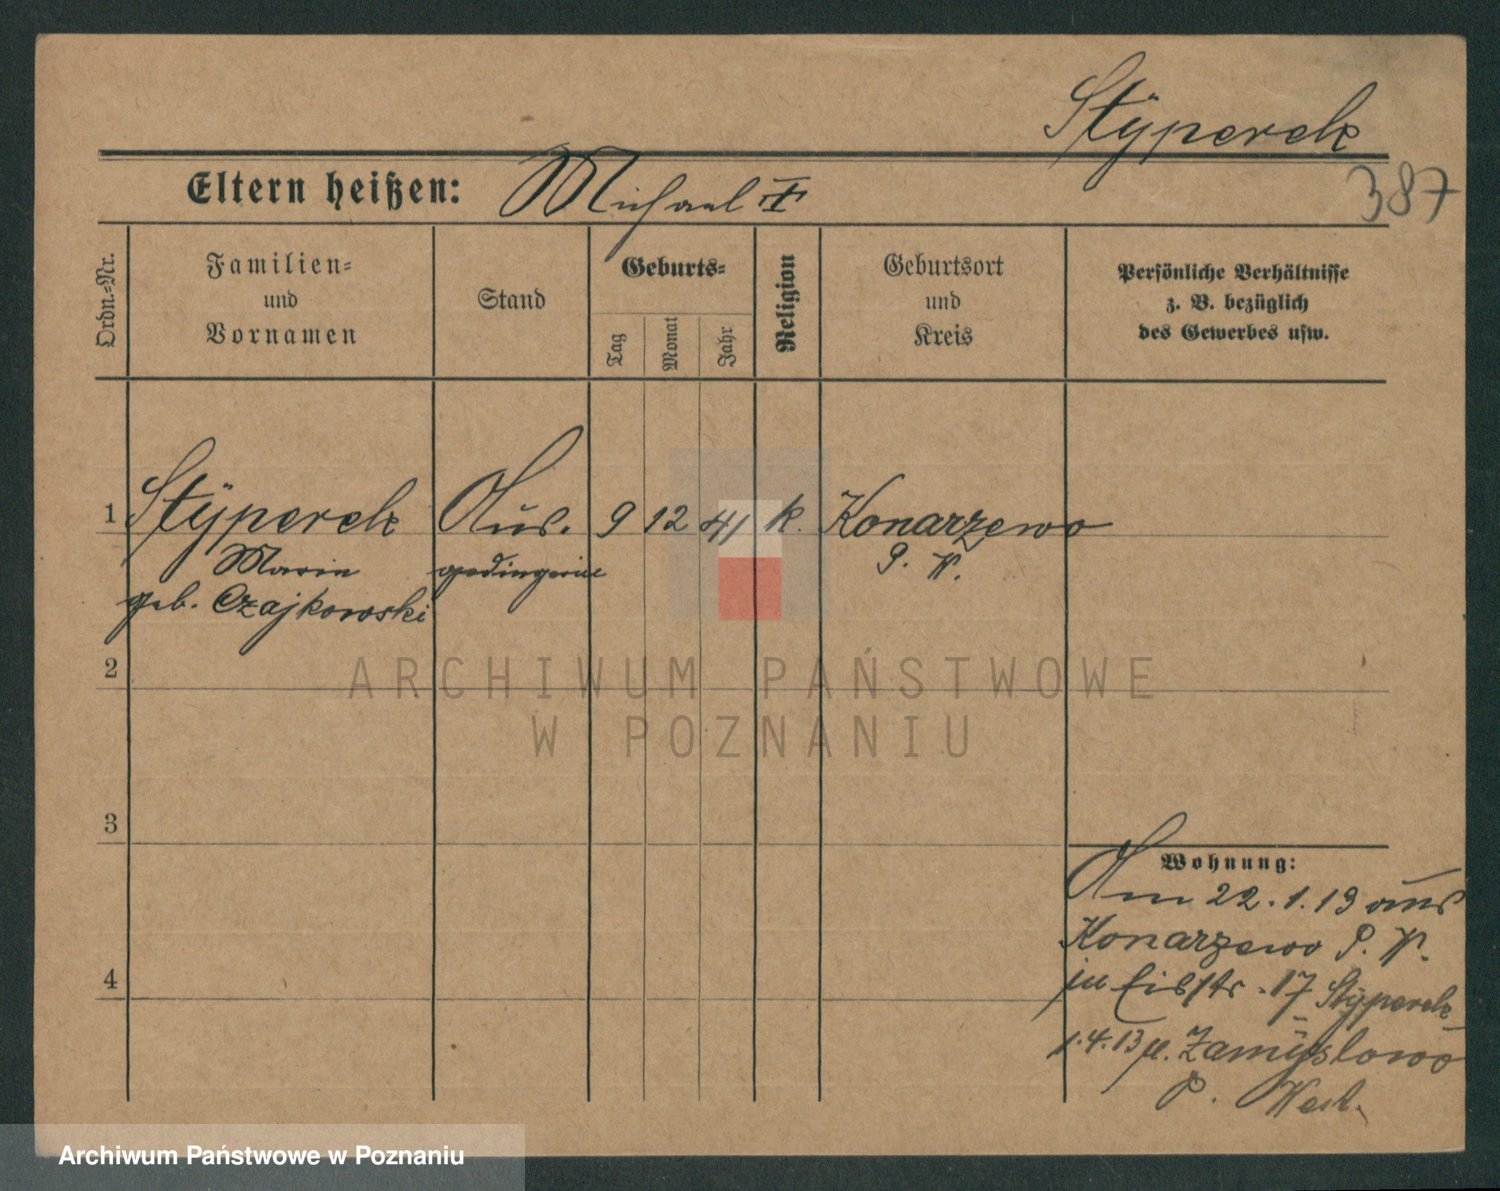 Styperek
387
Eltern heißen: Michael II †
Ordn.=Nr.
Familien=
und
Vornamen
Stand
Geburts=
Tag
Monat
Jahr
Religion
Geburtsort
und
Kreis
Persönliche Verhältnisse
z. B. bezüglich
des Gewerbes usw.
1 Stÿperek Aus- 9 12 41 k. Konarzewo
Marie gedingerin P. W.
geb. Czajkowski
2
ARCHIWUM PAŃSTWOWE
W POZNANIU
3
Wohnung:
Am 22.1.13 aus
Konarzewo P. W.
in 17 Stÿperek
4
1.4.13 n. Zamÿslowo
P. West.
Archiwum Państwowe w Poznaniu